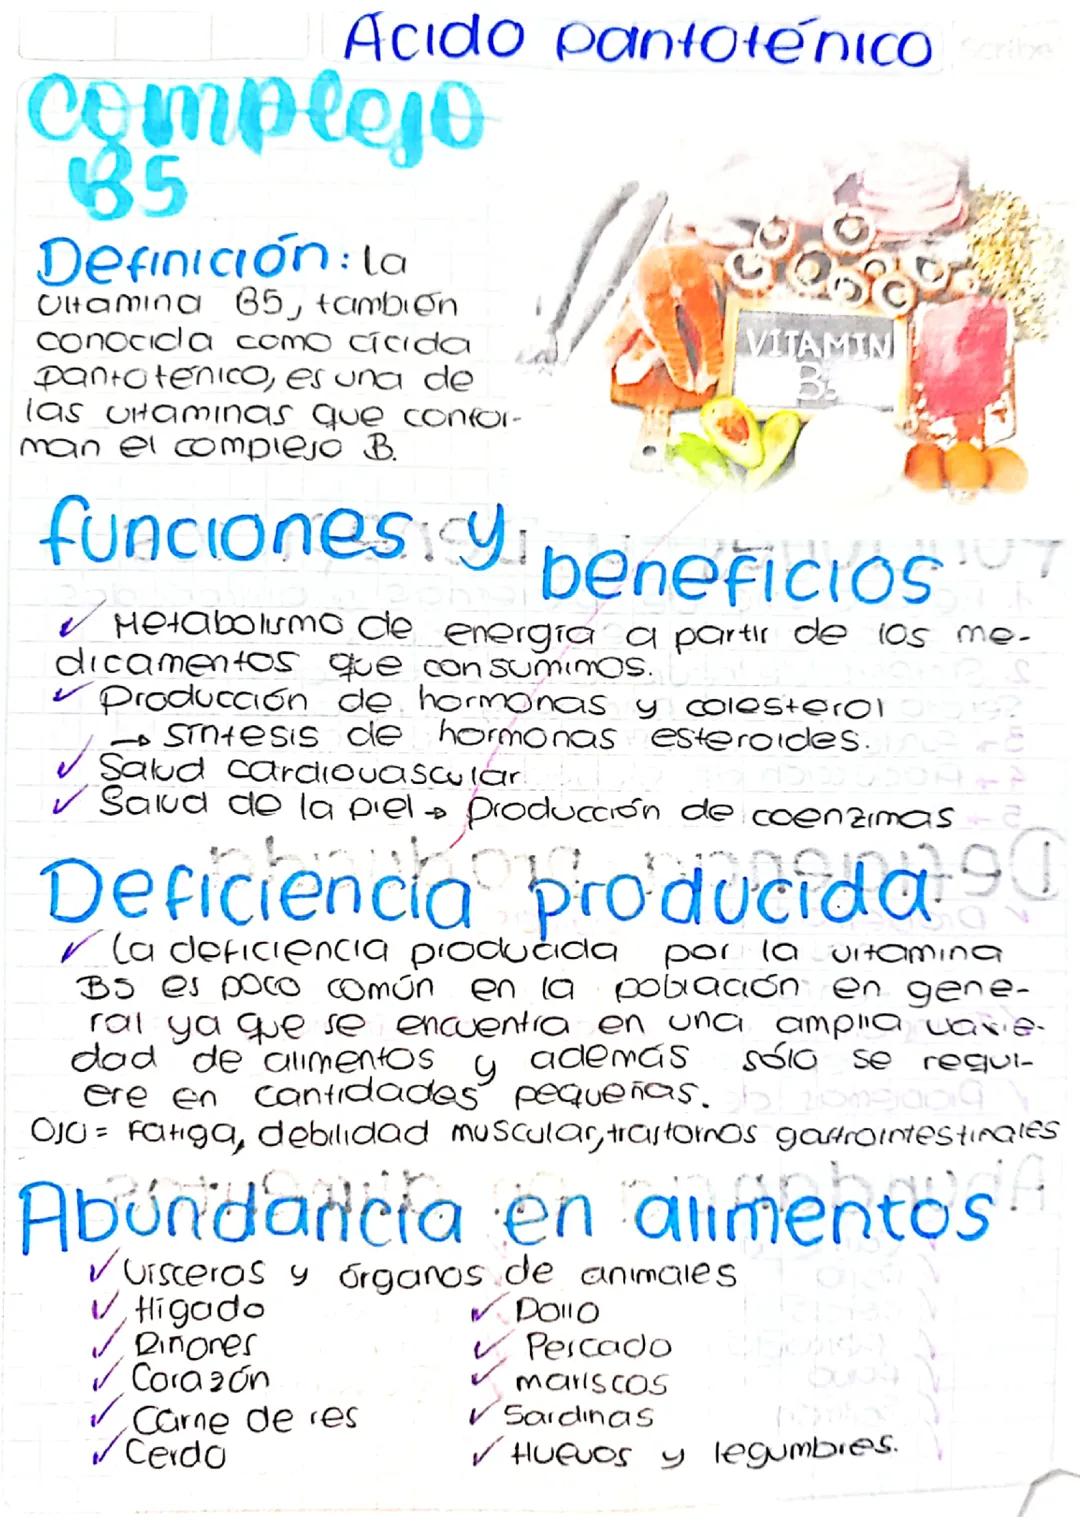 Ácido pantoténico
Scribe
Complejo
B5
Definición: la
vitamina B5, también
conocida como cícida
pantoténico, es una de
las vitaminas que confor-
man el complejo B.
VITAMIN
B5
funciones y
beneficios
✓ Metabolismo de energía a partir de los me-
dicamentos que consumimos.
✓ Producción de hormonas y colesterol
→ síntesis de hormonas esteroides.
✓ Salud cardiovascular
✓ Salud de la piel → producción de coenzimas
Deficiencia producida
✓ La deficiencia producida por la vitamina
B5 es poco común en la población en gene-
ral ya que se encuentra en una amplia varie-
dad de alimentos y además sólo se requi-
ere en cantidades pequeñas.
OJO = Fatiga, debilidad muscular, trastornos gastrointestinales
Abundancia en alimentos
✓ Vísceras y órganos de animales
✓ Hígado
✓ Riñones
✓ Corazón
✓ Carne de res
✓ Cerdo
✓ Pollo
✓ Pescado
✓ mariscos
✓ Sardinas
✓ Huevos y legumbres.